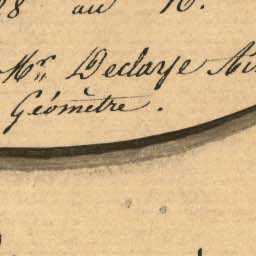 8 au 10.
Mr. Declaye
Géomètre.